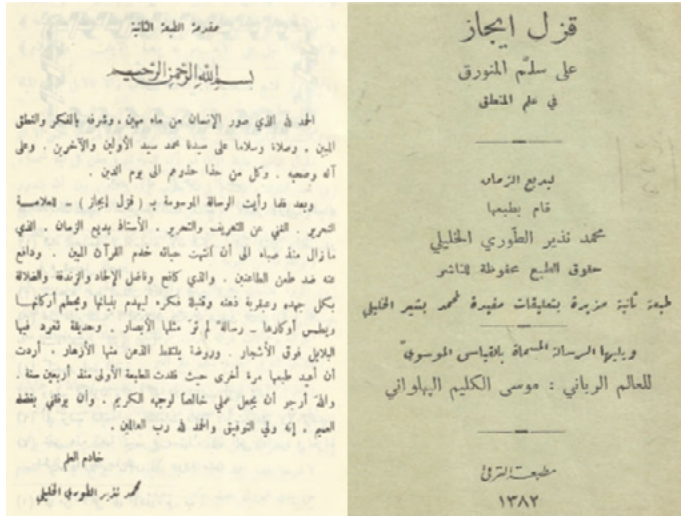 قزل ايجاز
على سلّم المنورق
في علم المنطق
لبديع الزمان
قام بطبعها
محمد نذير الطوري الخليلي
حقوق الطبع محفوظة للناشر
طبعة ثانية مزيدة بتعليقات مفيدة لمحمد بشير الخليلي
ويليها الرسالة المسماة بالقياس الموسويّ
للعالم الرباني : موسى الكليم البهلواني
مطبعة الترقي
١٣٨٢
مقدمة الطبعة الثانية
بسم الله الرحمن الرحيم
الحمد لله الذي صور الإنسان من ماء مهين ، وشرفه بالفكر والنطق
المبين . وصلاة وسلاما على سيدنا محمد سيد الأولين والآخرين . وعلى
آله وصحبه . وكل من حذا حذوهم الى يوم الدين .
وبعد فلما رأيت الرسالة الموسومة بـ ( قزل ايجاز ) – للعلامة
النحرير . الغني عن التعريف والتحرير . الأستاذ بديع الزمان . الذي
مازال منذ صباه الى أن انتهت حياته خدم القرآن المبين . ودافع
عنه ضد طعن الطاعنين . والذي كافح وناضل الإلحاد والزندقة والضلالة
بكل جهده وعبقرية ذهنه وقنبلة فكره ليهدم بنيانها ويحطم أركانها
ويطمس أوكارها – رسالة لم تر مثلها الأبصار . وحديقة تغرد فيها
البلابل فوق الأشجار . وروضة يلتقط الذهن منها الأزهار . أردت
أن أعيد طبعها مرة أخرى حيث نفدت الطبعة الأولى منذ أربعين سنة .
والله أرجو أن يجعل عملي خالصاً لوجهه الكريم . وأن يرزقني بفضله
العميم . إنه ولي التوفيق والحمد لله رب العالمين .
خادم العلم
محمد نذير الطوري الخليلي